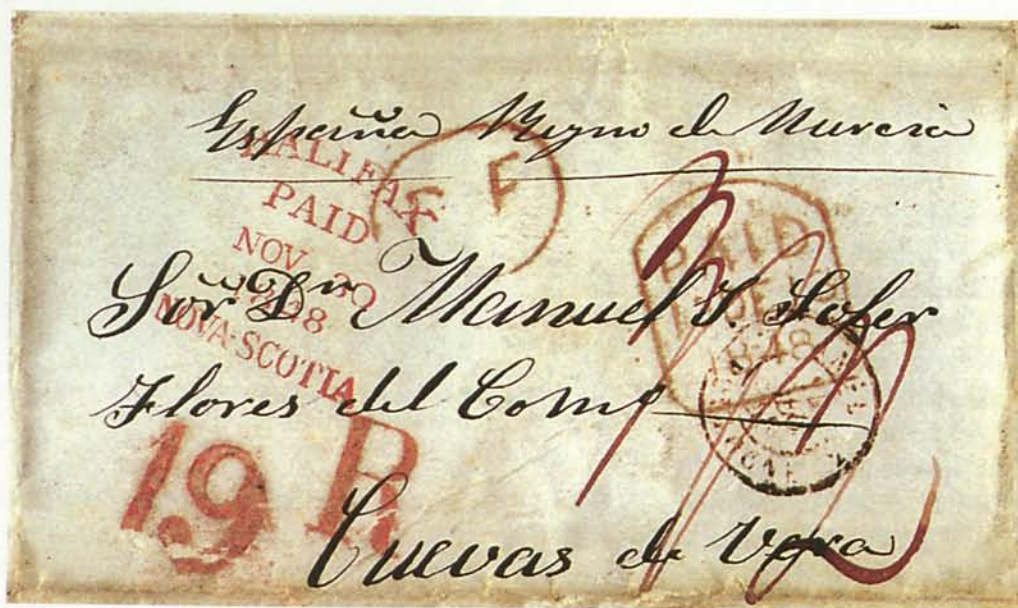 España Reyno de Murcia
HALIFAX
PAID
NOV 30
1848
NOVA-SCOTIA
P F
PAID
DE
1848
Sor Dn Manuel
Flores del Como
19 R
Cuevas de Vera